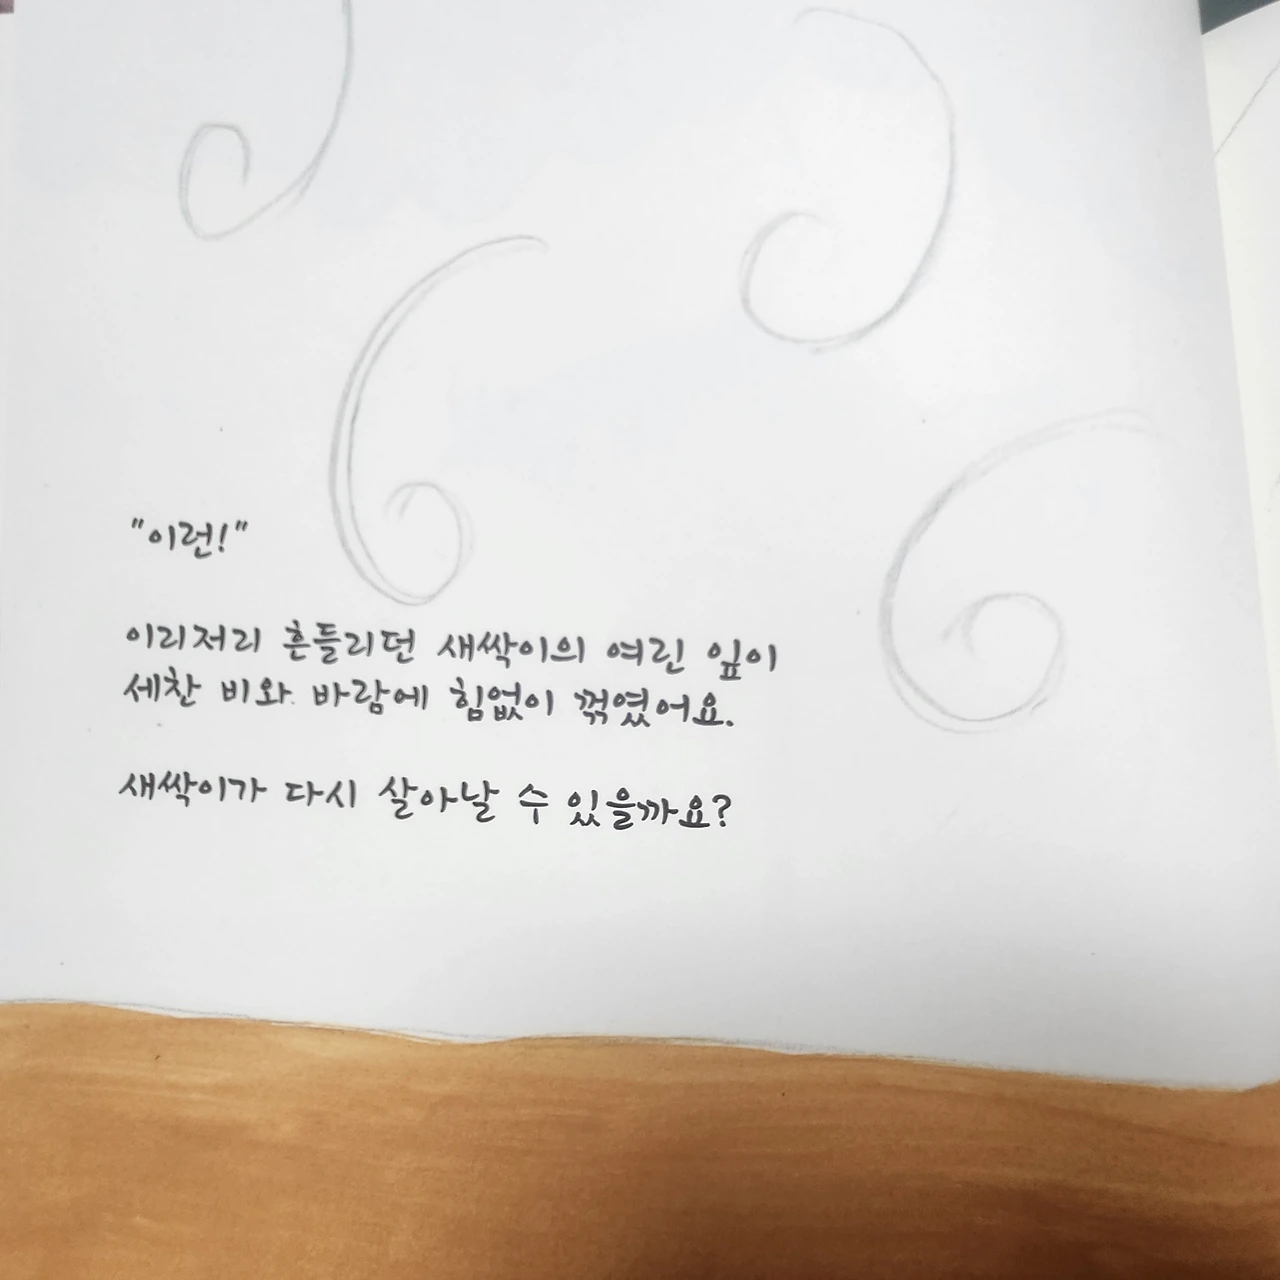 "이런!"
이리저리 흔들리던 새싹이의 여린 잎이
세찬 비와 바람에 힘없이 꺾였어요.
새싹이가 다시 살아날 수 있을까요?